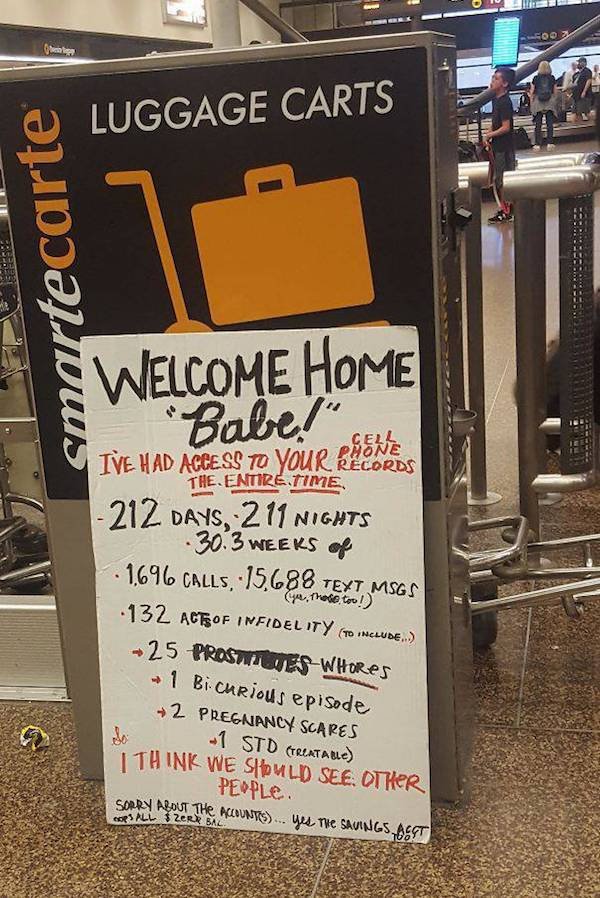 LUGGAGE CARTS
smartecarte
WELCOME HOME
"Babe!"
I'VE HAD ACCESS TO YOUR CELL PHONE RECORDS
THE ENTIRE TIME.
-212 DAYS, 211 NIGHTS
·30.3 WEEKS of
·1,696 CALLS, ·15,688 TEXT MSGS
(yes, those too!)
·132 ACTS OF INFIDELITY (TO INCLUDE...)
→25 PROSTITUTES WHORES
→1 Bi-curious episode
→2 PREGNANCY SCARES
→1 STD (TREATABLE)
So
I THINK WE SHOULD SEE OTHER
PEOPLE.
SORRY ABOUT THE ACCOUNT(S)... yes THE SAVINGS ACCT
oops ALL $ ZERO BAL. TOO!